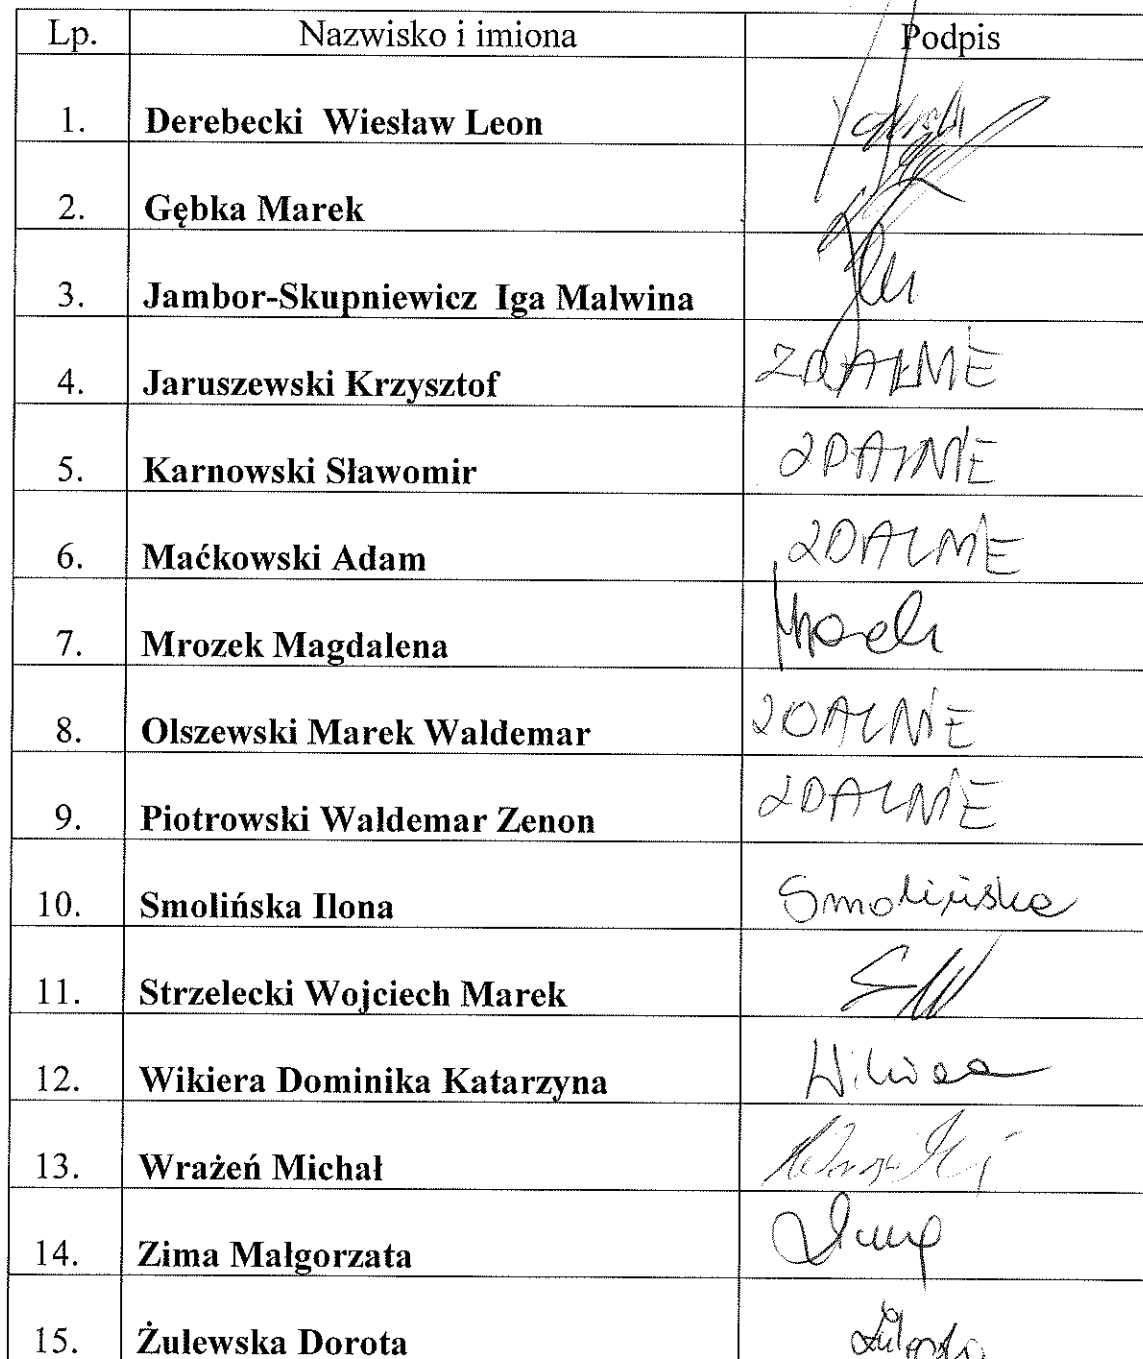 Lp. Nazwisko i imiona Podpis
1. Derebecki Wiesław Leon
2. Gębka Marek
3. Jambor-Skupniewicz Iga Malwina
4. Jaruszewski Krzysztof ZDALNIE
5. Karnowski Sławomir ZDALNIE
6. Maćkowski Adam ZDALNIE
7. Mrozek Magdalena
8. Olszewski Marek Waldemar ZDALNIE
9. Piotrowski Waldemar Zenon ZDALNIE
10. Smolińska Ilona Smolińska
11. Strzelecki Wojciech Marek
12. Wikiera Dominika Katarzyna
13. Wrażeń Michał
14. Zima Małgorzata
15. Żulewska Dorota